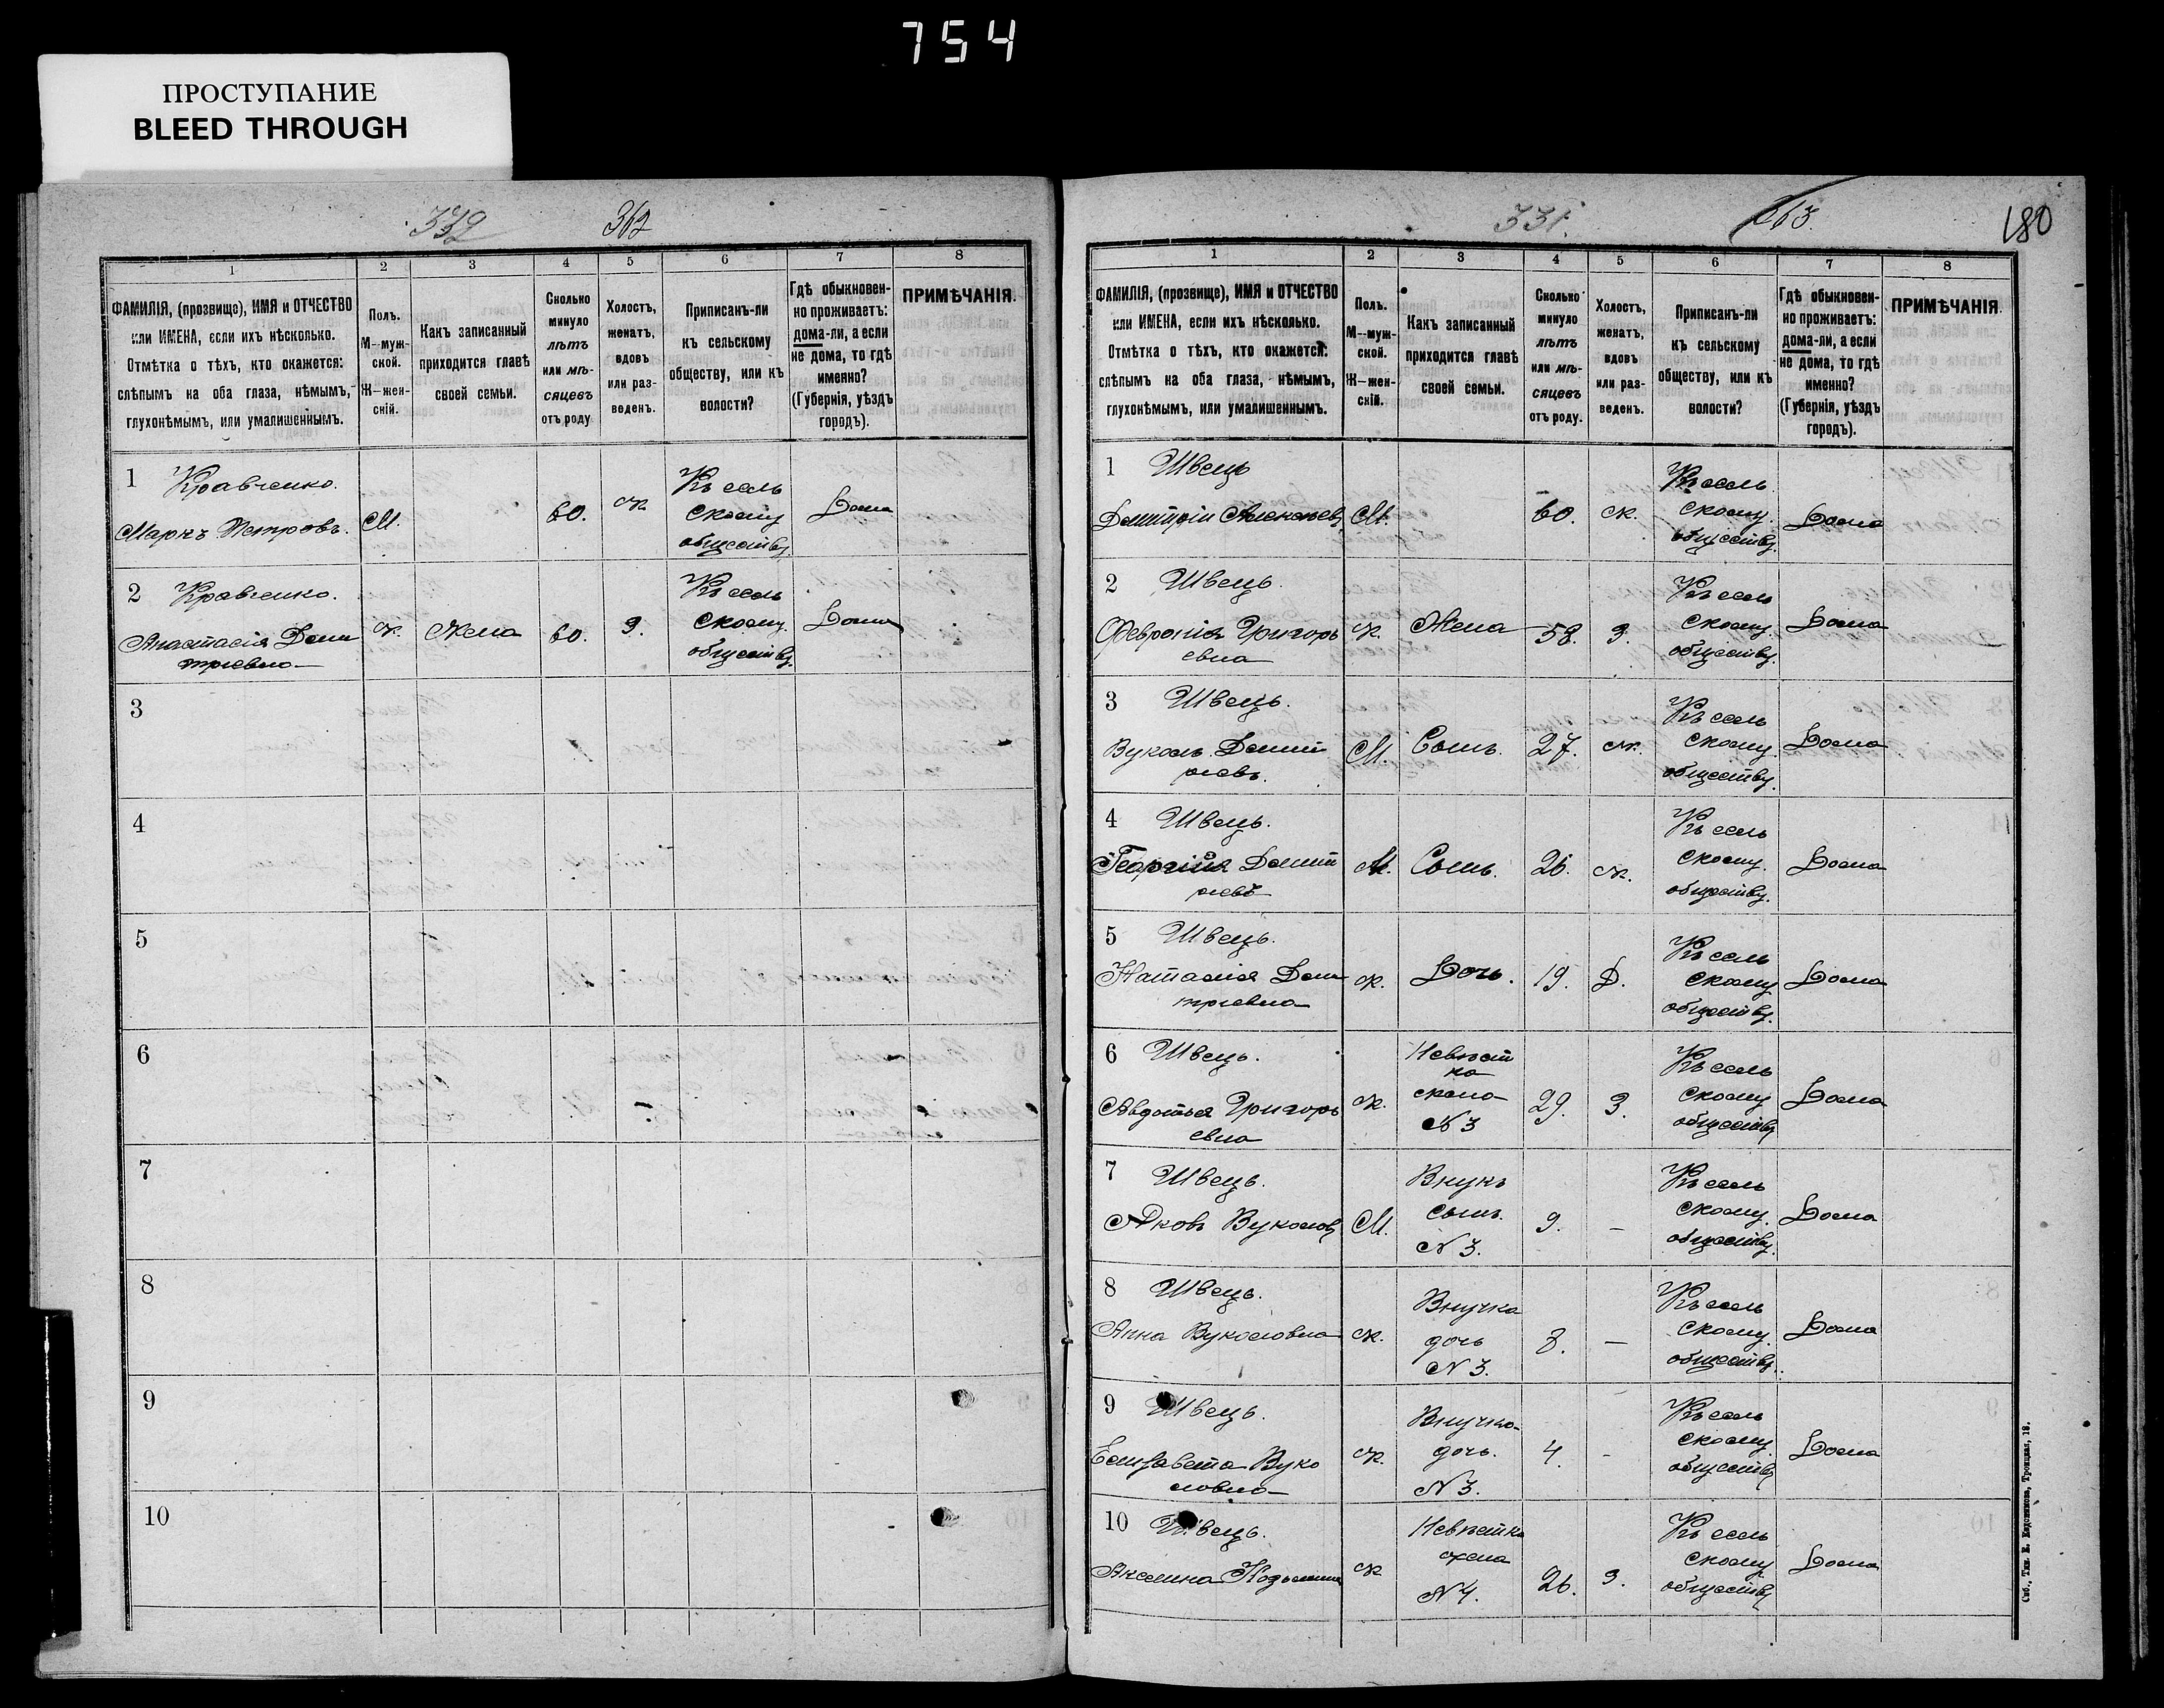 754
ПРОСТУПАНИЕ
BLEED THROUGH
332 362
1 2 3 4 5 6 7 8
ФАМИЛІЯ, (прозвище), ИМЯ и ОТЧЕСТВО
или ИМЕНА, если ихъ нѣсколько.
Отмѣтка о тѣхъ, кто окажется:
слѣпымъ на оба глаза, нѣмымъ,
глухонѣмымъ, или умалишеннымъ.
Полъ.
М--муж-
ской.
Ж--жен-
скій.
Какъ записанный
приходится главѣ
своей семьи.
Сколько
минуло
лѣтъ
или мѣ-
сяцевъ
отъ роду
Холостъ,
женатъ,
вдовъ
или раз-
веденъ.
Приписанъ-ли
къ сельскому
обществу, или къ
волости?
Гдѣ обыкновен-
но проживаетъ:
дома-ли, а если
не дома, то гдѣ
именно?
(Губернія, уѣздъ
городъ).
ПРИМѢЧАНІЯ.
1 Кравченко.
Маркъ Петровъ. М. 60. ж Къ сель
скому
обществу. Дома
2 Кравченко.
Анастасія Дми
тріевна ж. Жена 60. З. Къ сель
скому
обществу. Дома
3
4
5
6
7
8
9
10
331. 363. 180
1 2 3 4 5 6 7 8
ФАМИЛІЯ, (прозвище), ИМЯ и ОТЧЕСТВО
или ИМЕНА, если ихъ нѣсколько.
Отмѣтка о тѣхъ, кто окажется:
слѣпымъ на оба глаза, нѣмымъ,
глухонѣмымъ, или умалишеннымъ.
Полъ.
М--муж-
ской.
Ж--жен-
скій.
Какъ записанный
приходится главѣ
своей семьи.
Сколько
минуло
лѣтъ
или мѣ-
сяцевъ
отъ роду.
Холостъ,
женатъ,
вдовъ
или раз-
веденъ.
Приписанъ-ли
къ сельскому
обществу, или къ
волости?
Гдѣ обыкновен-
но проживаетъ:
дома-ли, а если
не дома, то гдѣ
именно?
(Губернія, уѣздъ
городъ).
ПРИМѢЧАНІЯ
1 Швецъ
Дмитрій М. 60. ж. Къ сель
скому
обществу. Дома
2 Швецъ.
Февронія Григорь
евна ж. Жена 58. З. Къ сель
скому
обществу. Дома
3 Швецъ.
Вуколъ Дмит
ріевъ. М. Сынъ. 27. ж. Къ сель
скому
обществу. Дома
4 Швецъ.
Георгій Дмит
ріевъ М. Сынъ. 26. ж. Къ сель
скому
обществу. Дома
5 Швецъ.
Наталія Дми
тріевна ж. Дочь. 19. Д. Къ сель
скому
обществу. Дома
6 Швецъ.
Авдотья Григорь
евна ж. Невѣст
ка
жена
N 3 29. З. Къ сель
скому
обществу Дома
7 Швецъ.
Яковъ Вуколов М. Внукъ
сынъ.
N 3. 9. – Къ сель
скому
обществу. Дома
8 Швецъ.
Анна Вуколовна ж. Внучка
дочь
N 3. 8. – Къ сель
скому
обществу. Дома
9 Швецъ.
Елизавета Вуко
ловна ж. Внучка
дочь.
N 3. 4. - Къ сель
скому
обществу Дома
10 Швецъ.
Акилина ж Невѣстка
жена
N 4. 26. З. Къ сель
скому
обществу Дома
Спб., Тип. Е. Евдокимова, Троицкая, 18.